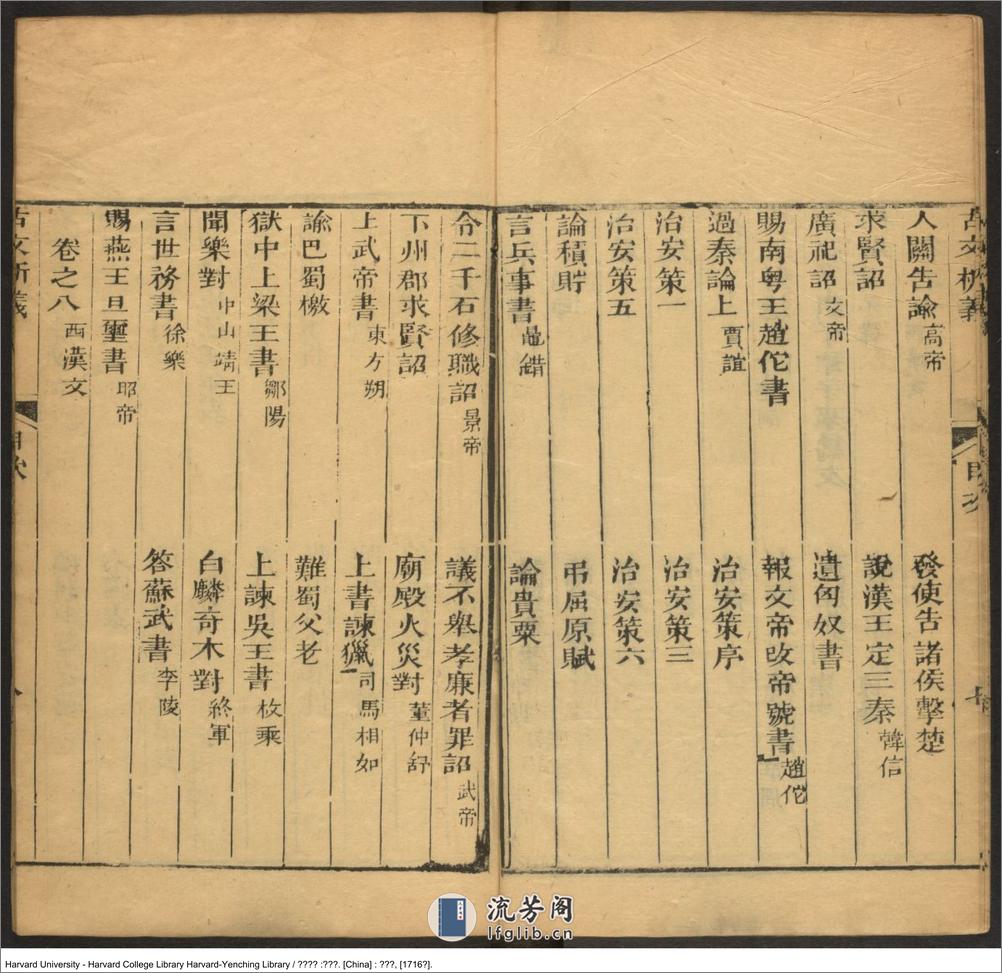 古文析義
目次
七
入關告諭 高帝
發使告諸侯擊楚
求賢詔
說漢王定三秦 韓信
廣祀詔 文帝
遺匈奴書
賜南粤王趙佗書
報文帝改帝號書 趙佗
過秦論上 賈誼
治安策序
治安策一
治安策三
治安策五
治安策六
論積貯
弔屈原賦
言兵事書 鼂錯
論貴粟
令二千石修職詔 景帝
議不舉孝廉者罪詔 武帝
下州郡求賢詔
廟殿火災對 董仲舒
上武帝書 東方朔
上書諫獵 司馬相如
諭巴蜀檄
難蜀父老
獄中上梁王書 鄒陽
上諫吳王書 枚乘
聞樂對 中山靖王
白麟奇木對 終軍
言世務書 徐樂
答蘇武書 李陵
賜燕王旦璽書 昭帝
卷之八 西漢文
古文析義
目次
八
流芳阁
lfglib.cn
Harvard University - Harvard College Library Harvard-Yenching Library / ???? :???. [China] : ???, [1716?].